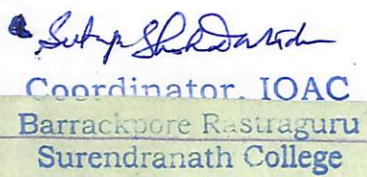 Coordinator, IOAC
Barrackpore Rastraguru
Surendranath College